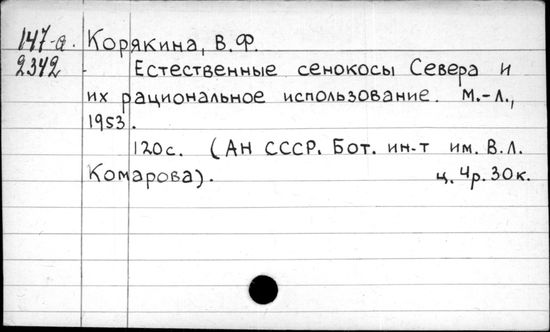 147-а. Корякина, В.Ф.
2342 Естественные сенокосы Севера и
их рациональное использование. М.-Л.,
1953.
120с. (АН СССР. Бот. ин-т им. В.Л.
Комарова). ц. 4р. 30к.